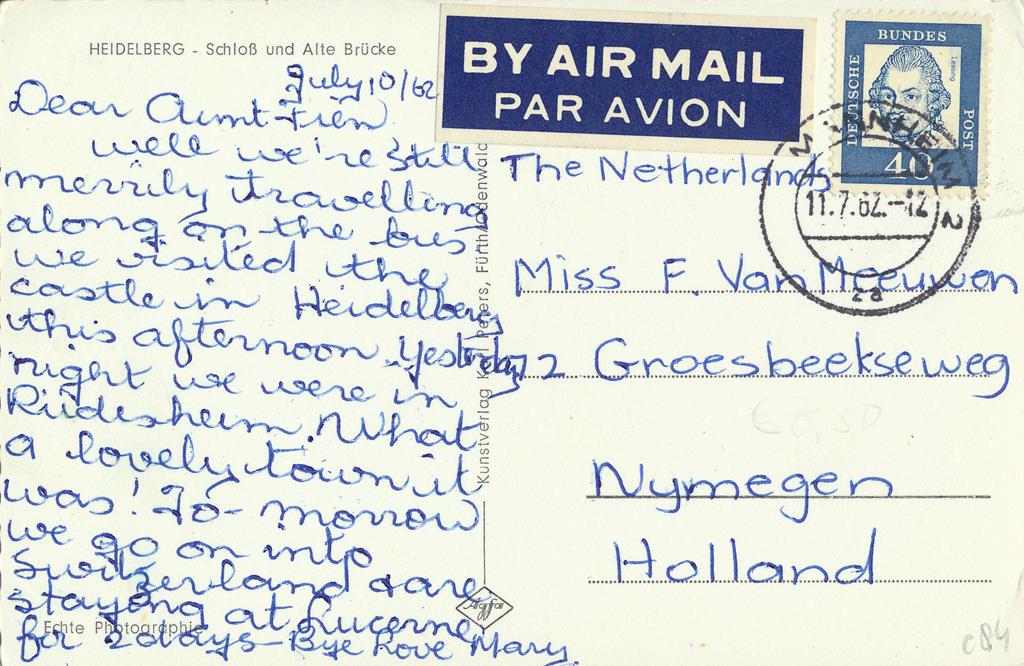 HEIDELBERG - Schloß und Alte Brücke
July 10/62
Dear Aunt Fien
well we're still
merrily travelling
along on the bus
we visited the
castle in Heidelberg
this afternoon. Yesterday
night we were in
Rüdesheim. What
a lovely town it
was! To-morrow
we go on into
Switzerland & are
staying at Lucerne
for 2 days - Bye Love Mary
Echte Photographie
Kunstverlag Karl Peters, Fürth/Odenwald
Agfa
BY AIR MAIL
PAR AVION
DEUTSCHE BUNDESPOST
Lessing
40
MANNHEIM 2
11.7.62.-12
za
The Netherlands
Miss F. Van Meeuwen
72 Groesbeekseweg
Nymegen
Holland
€0,50
c84